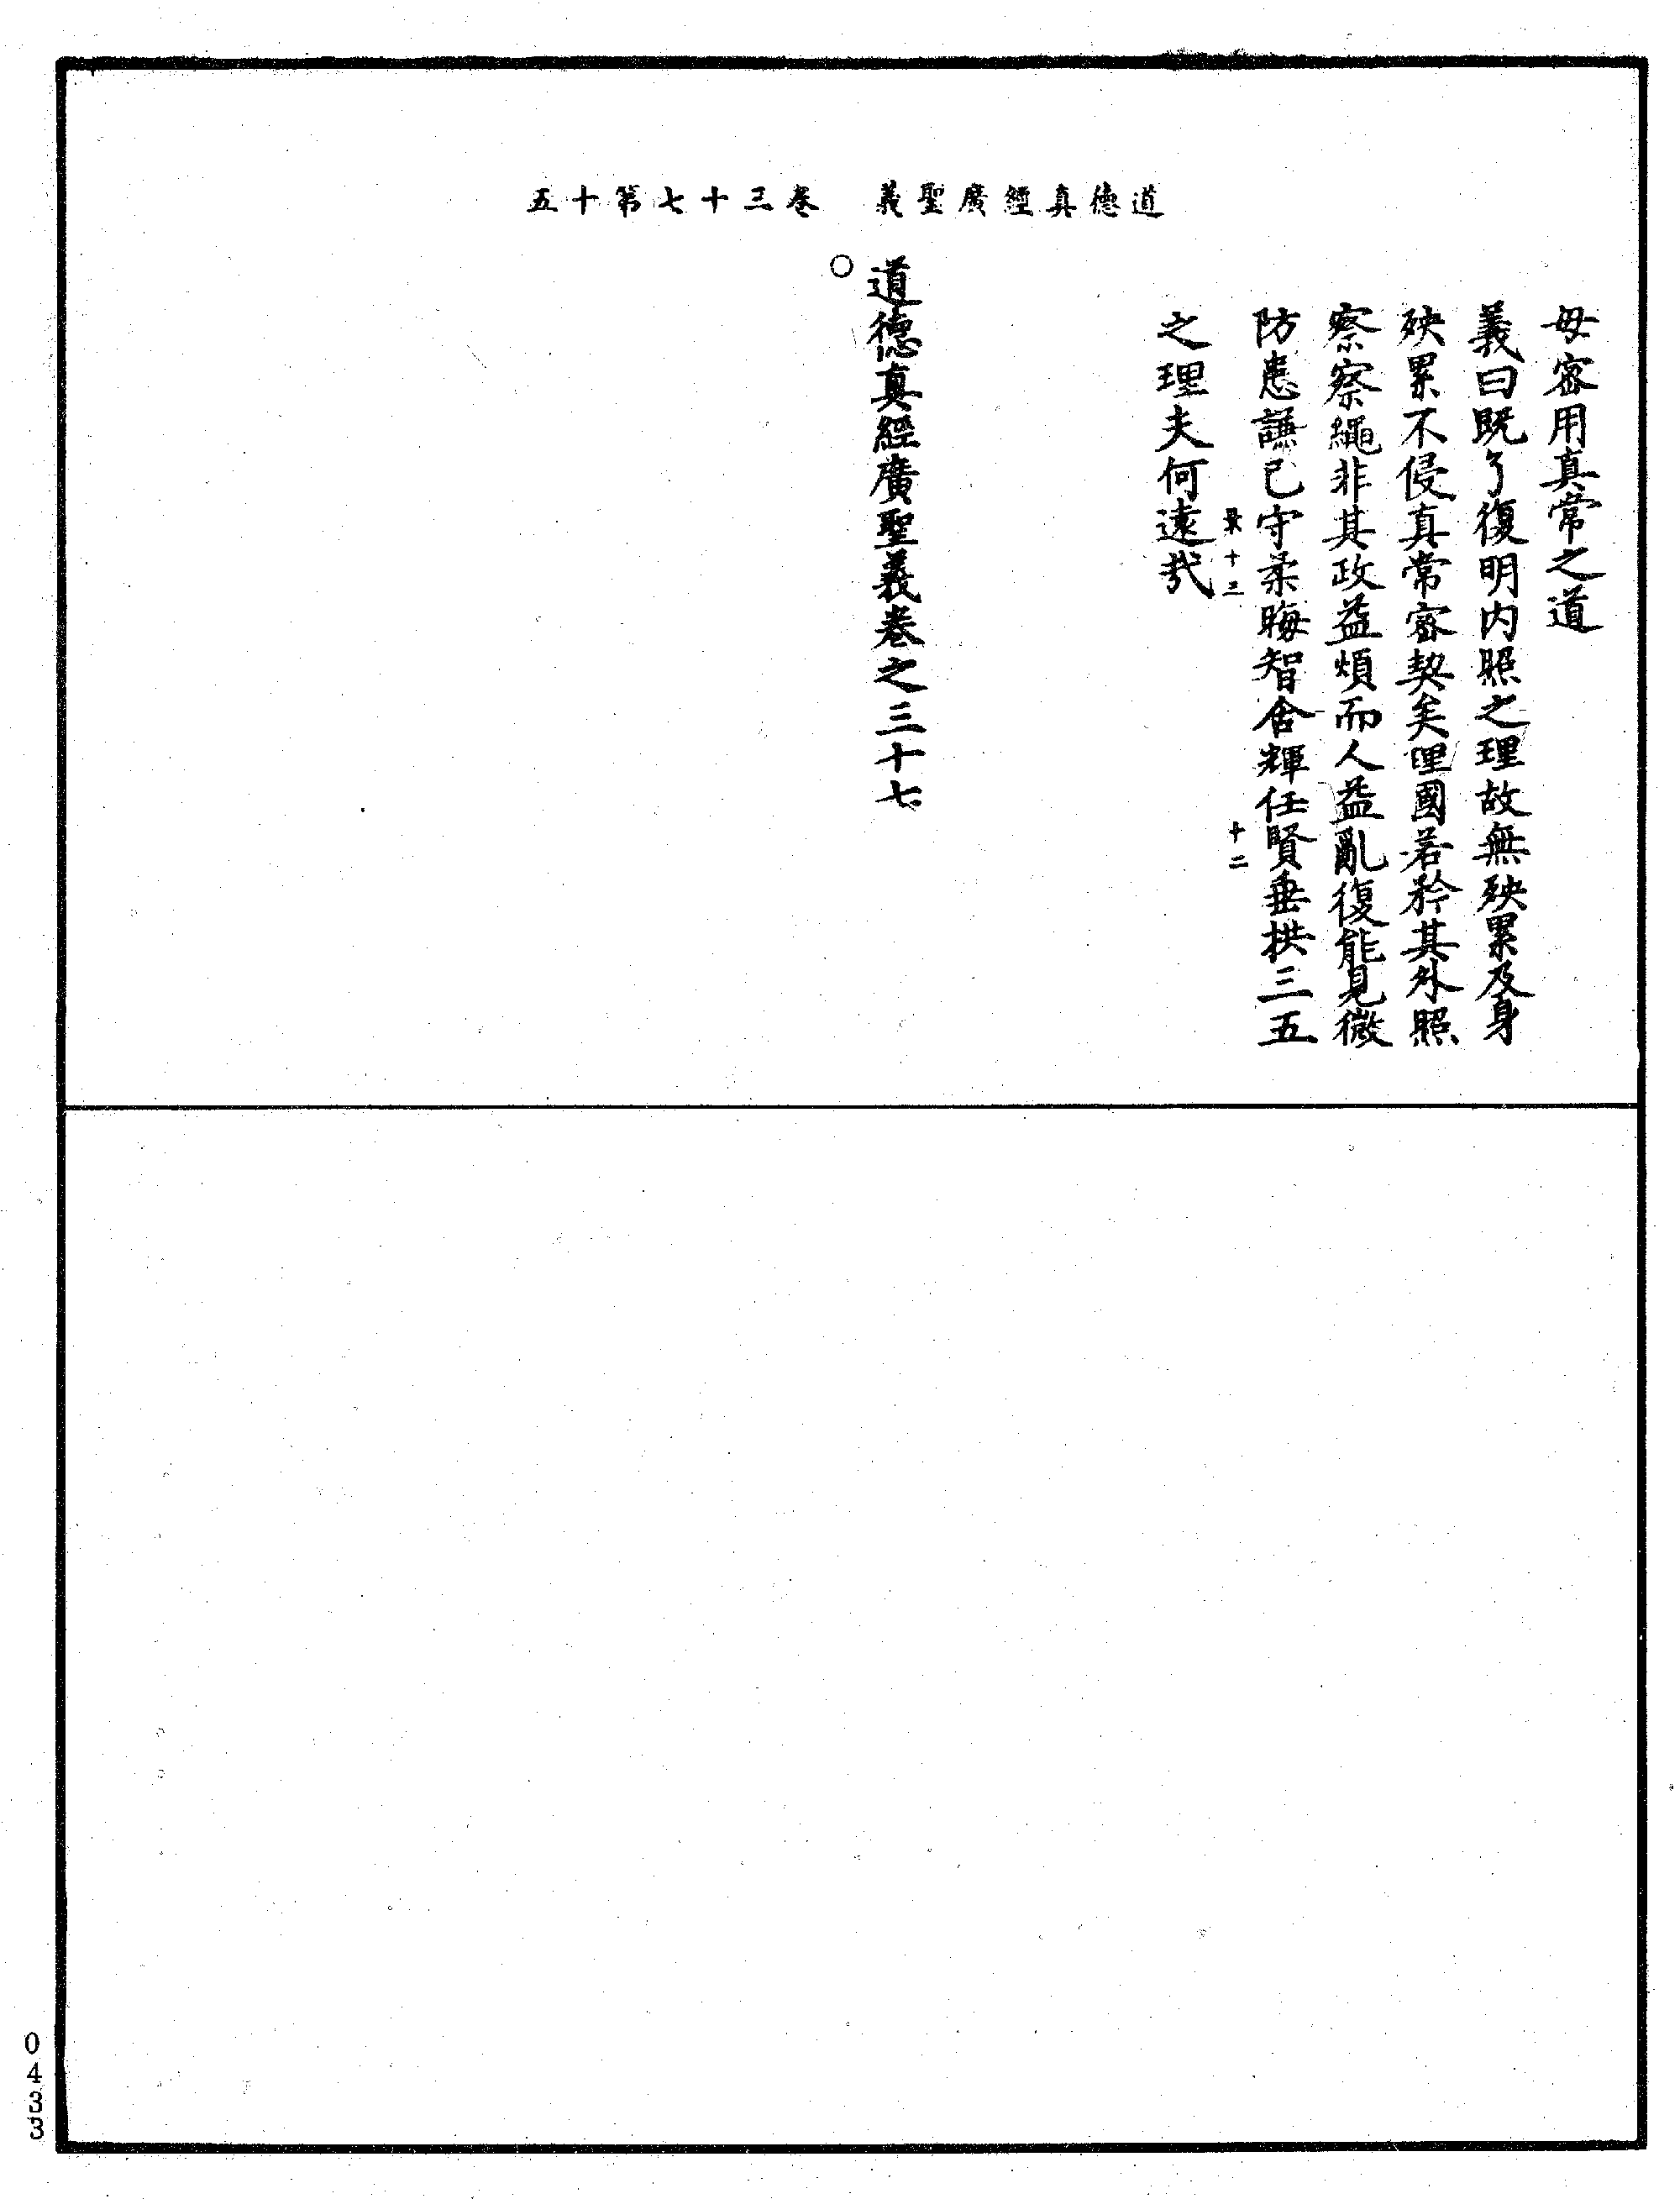 道德真經廣聖義　卷三十七第十五
毋密用真常之道
義曰既了復明内照之理故無殃累及身
殃累不侵真常密契矣理國若矜其外照
察察繩非其政益煩而人益亂復能見微
防患謙己守柔晦智含輝任賢垂拱三五
十三
十二
之理夫何遠哉
道德真經廣聖義卷之三十七
○
0433